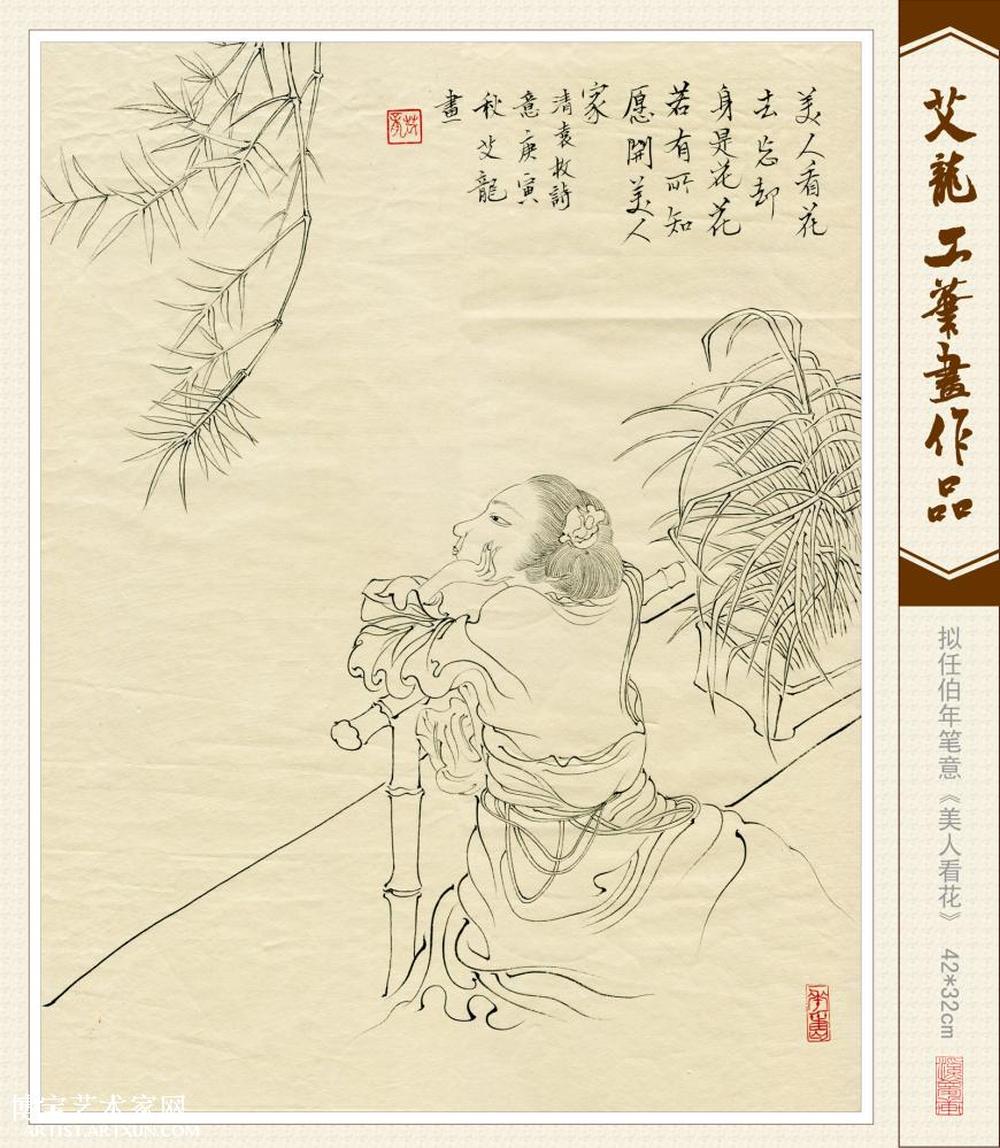 美人看花
去忘却
身是花花
若有所知
愿開美人
家
清袁枚詩
意庚寅
秋艾龍
畫
艾龍工筆畫作品
拟任伯年笔意《美人看花》 42*32cm
博宝艺术家网
ARTIST.ARTXUN.COM